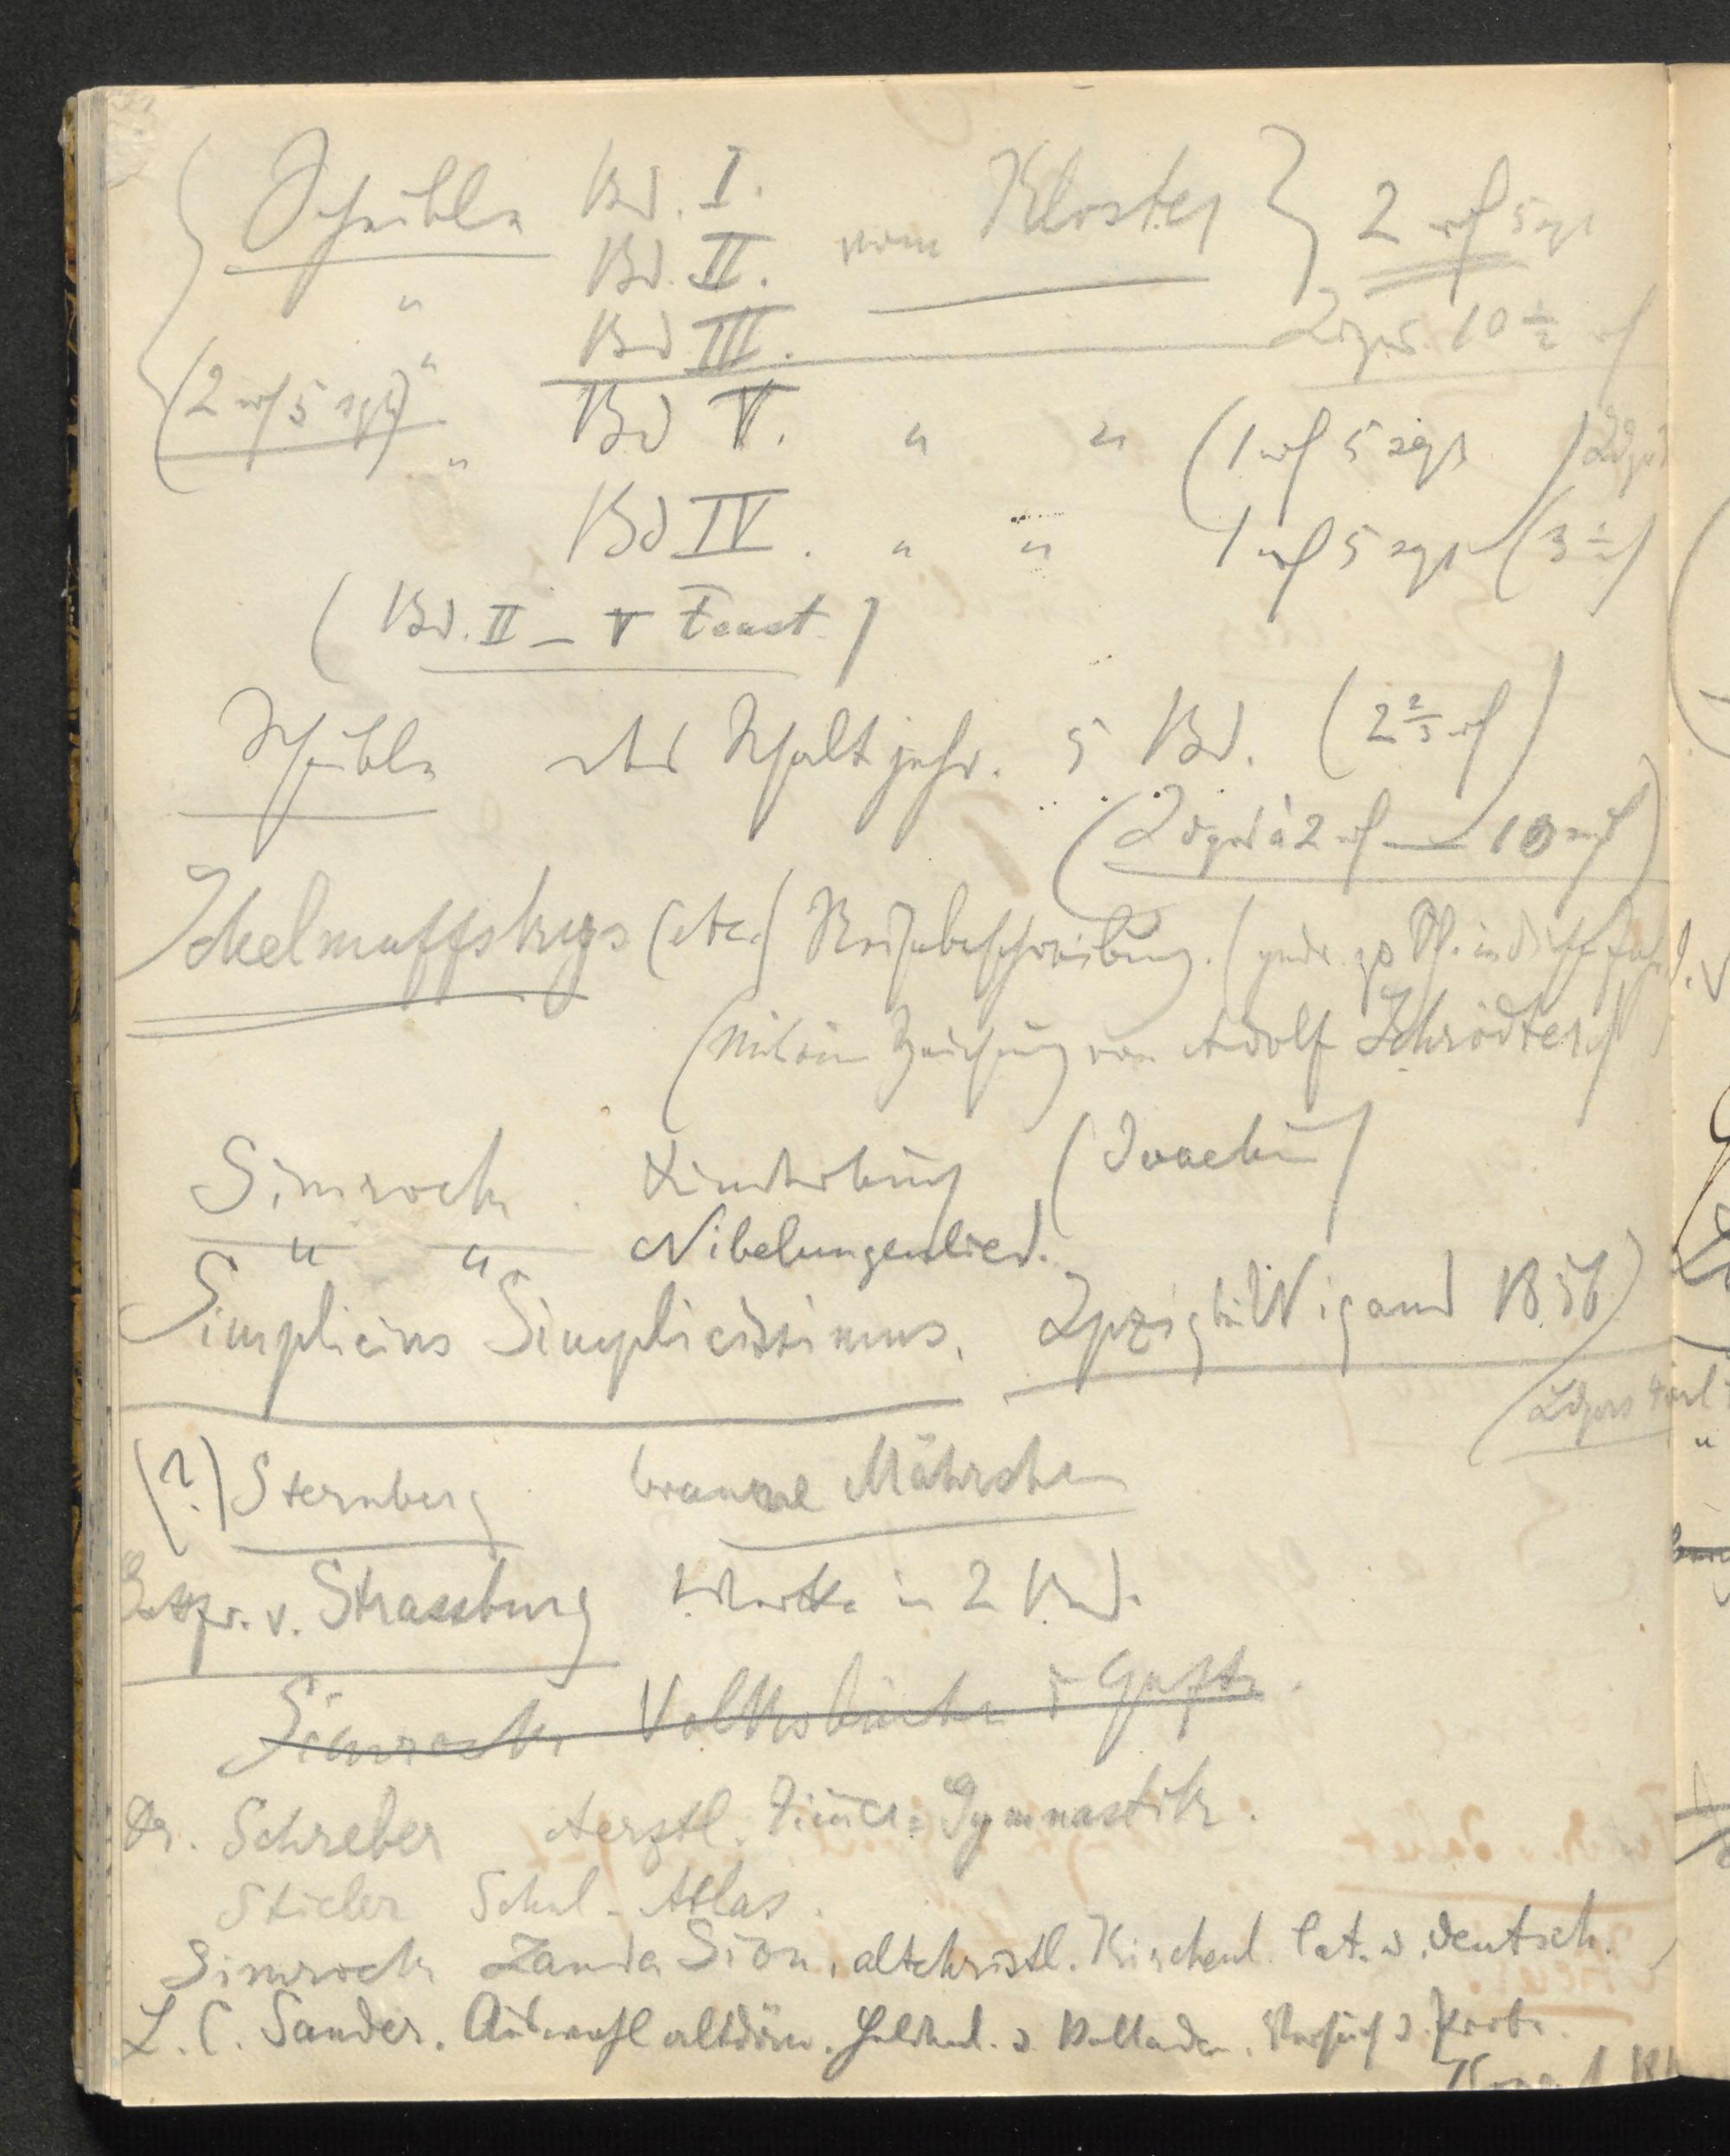 Scheible Bd. I. vom Kloster 2 rf 5 sgr
" Bd. II.
" Bd III. Ldpr. 10 ½ rf
(2 rf 5 sgr)
" Bd V. " " (1 rf 5 sgr) Ldpr
Bd IV. " " 1 rf 5 sgr (3 ½)
(Bd. II – V Faust)
Scheible das Schaltjahr. 5 Bd. (2 2/3 rf)
(Ldpr à 2 rf — 10 rf)
Schelmuffskys (etc.) Reisebeschreibung.
(Mit ein Zeichnung von Adolf Schrödter)
Simrock Kinderbuch (Joachim)
" " Nibelungenlied.
Simplicius Simplicissimus. Lpzig bei Wigand 1856)
(?) Sternberg braune Mährchen
Gottfr. v. Strassburg Werke in 2 Bd.
Simrock Volksbücher
Dr. Schreber Aerztl. Zimer-Gymnastik.
Stieler Schul-Atlas.
Simrock Lauda Sion, altchristl. Kirchenl. lat. u. deutsch.
L. C. Sander. Auswahl altdän. Heldenl. u. Balladen.